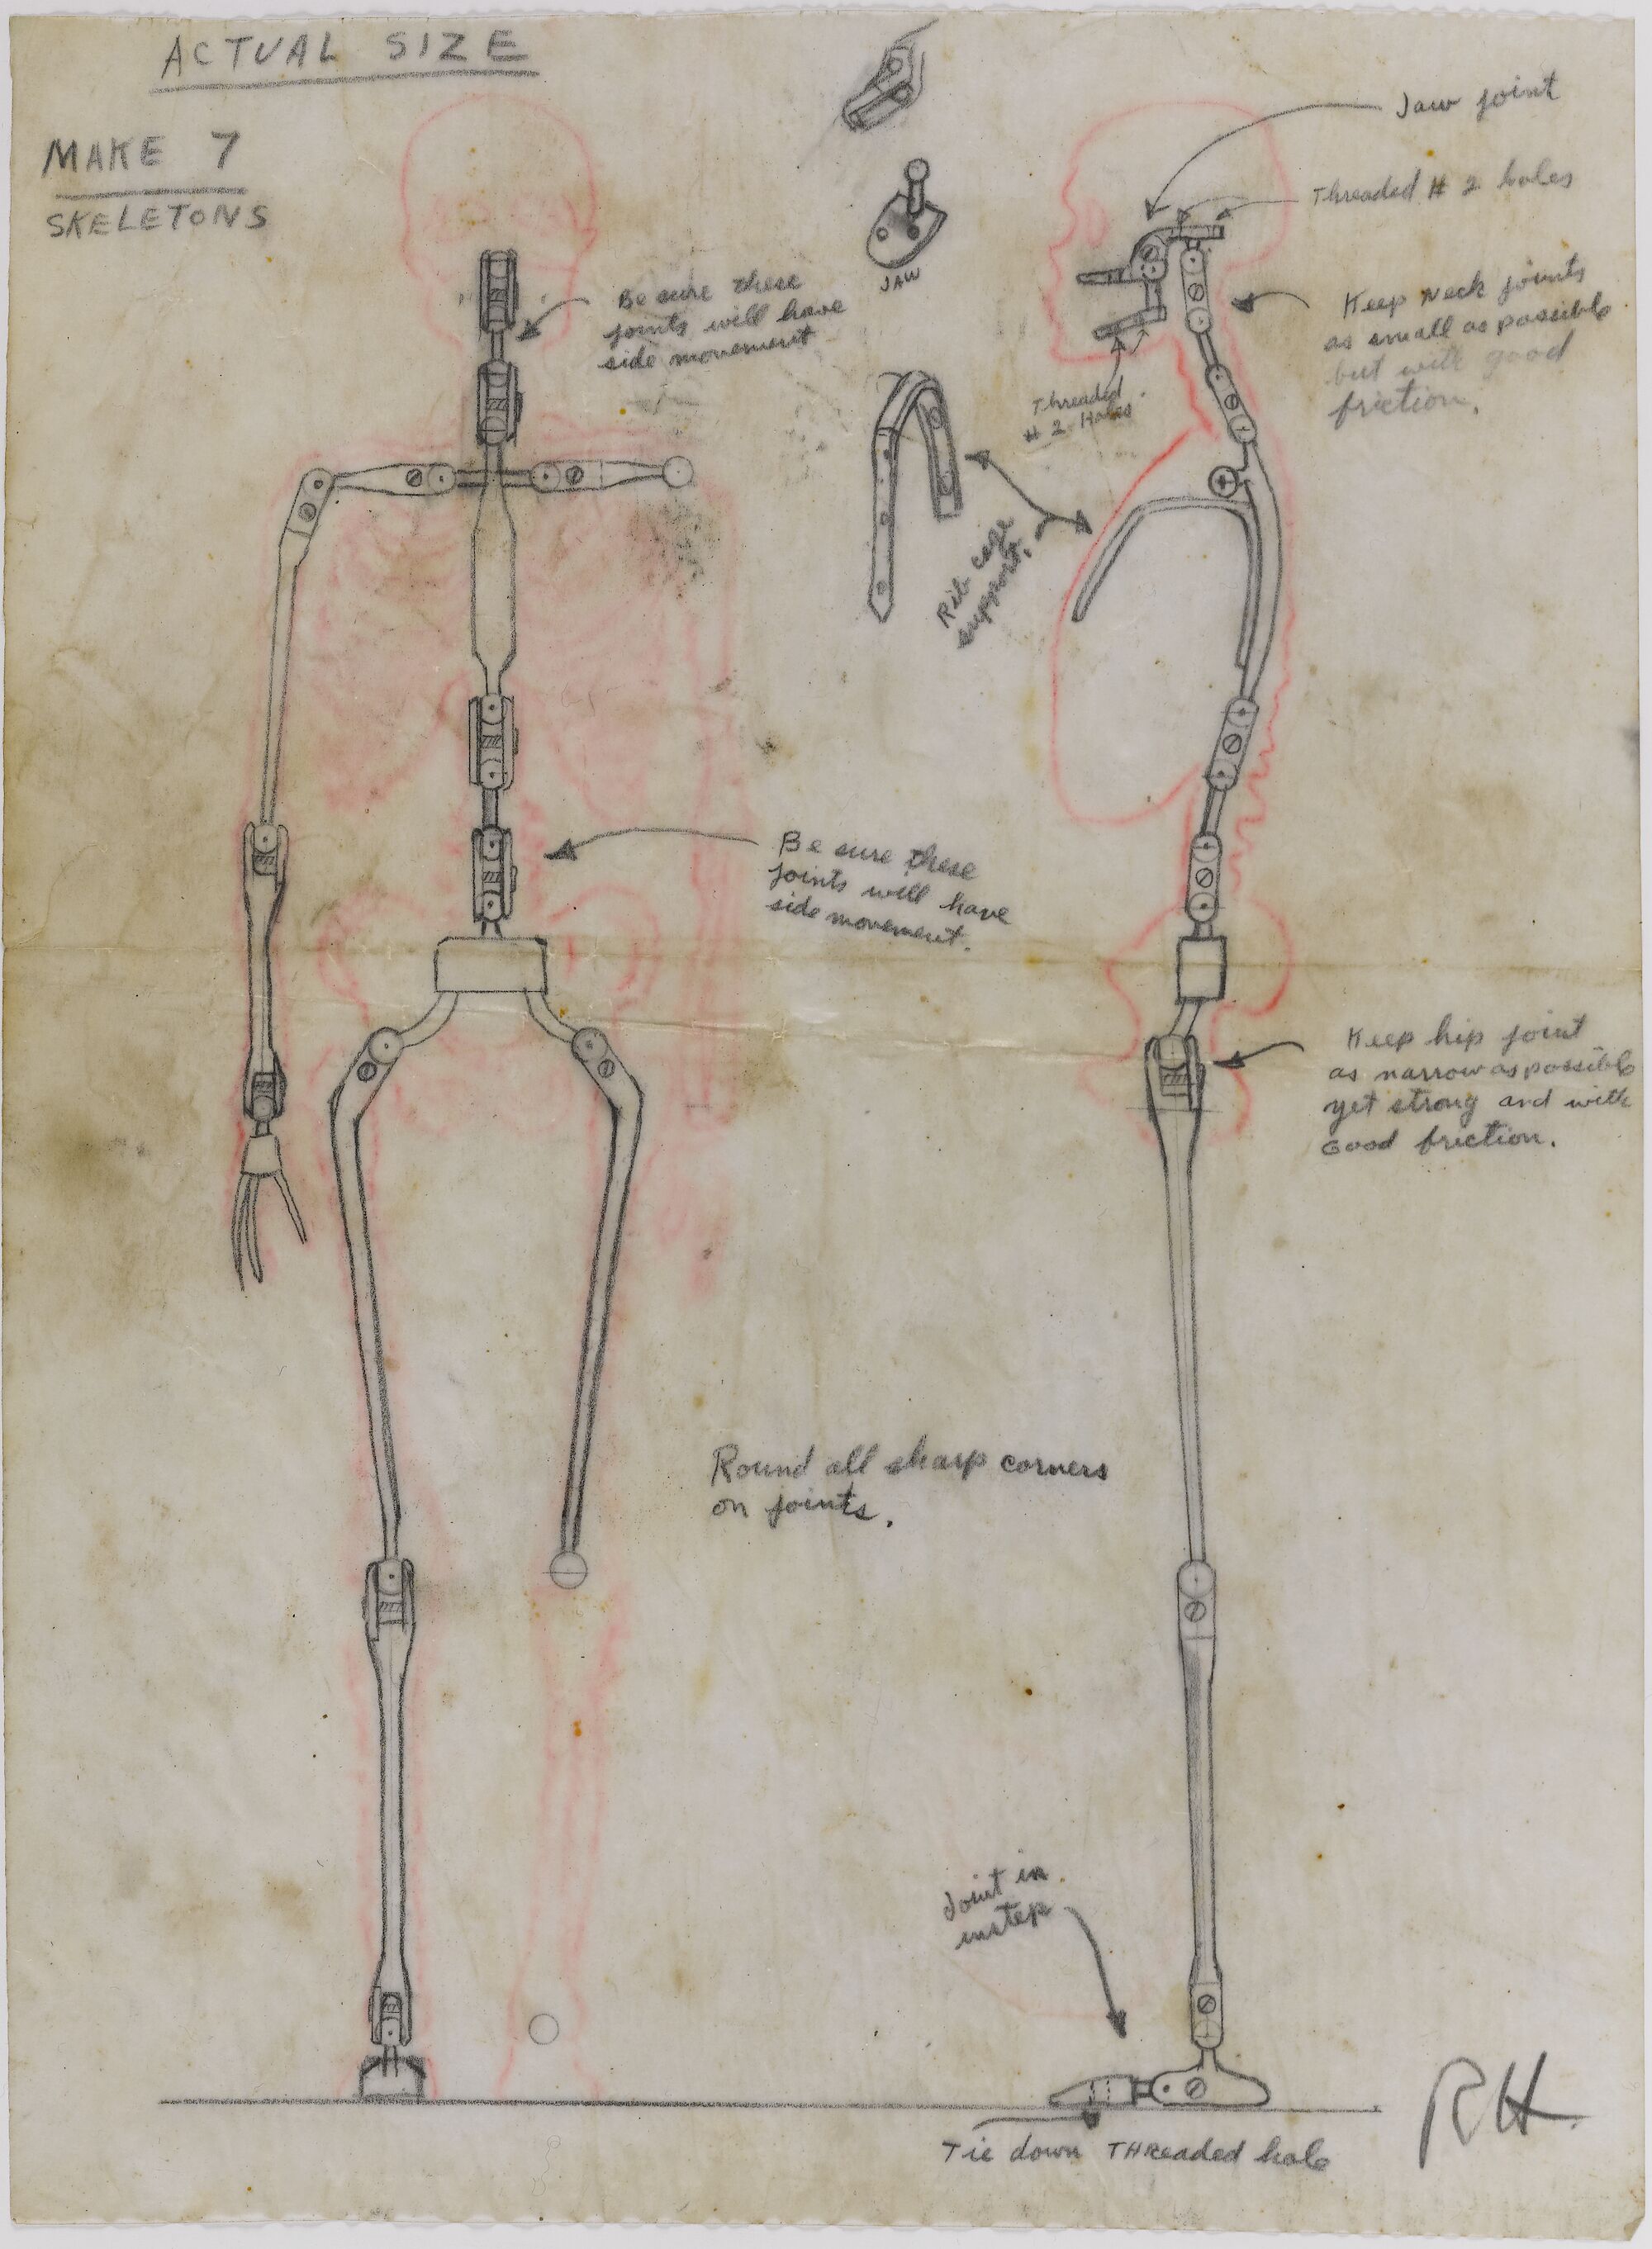 ACTUAL SIZE
MAKE 7
SKELETONS
Jaw joint
Threaded # 2 holes
JAW
Be sure these
joints will have
side movement
Keep Neck joints
as small as possible
but will good
friction.
Threaded
# 2 Holes
Rib cage
support.
Be sure these
joints will have
side movement.
Keep hip joint
as narrow as possible
yet strong and with
Good friction.
Round all sharp corners
on joints.
Joint in
instep
Tie down THReaded hole
RH